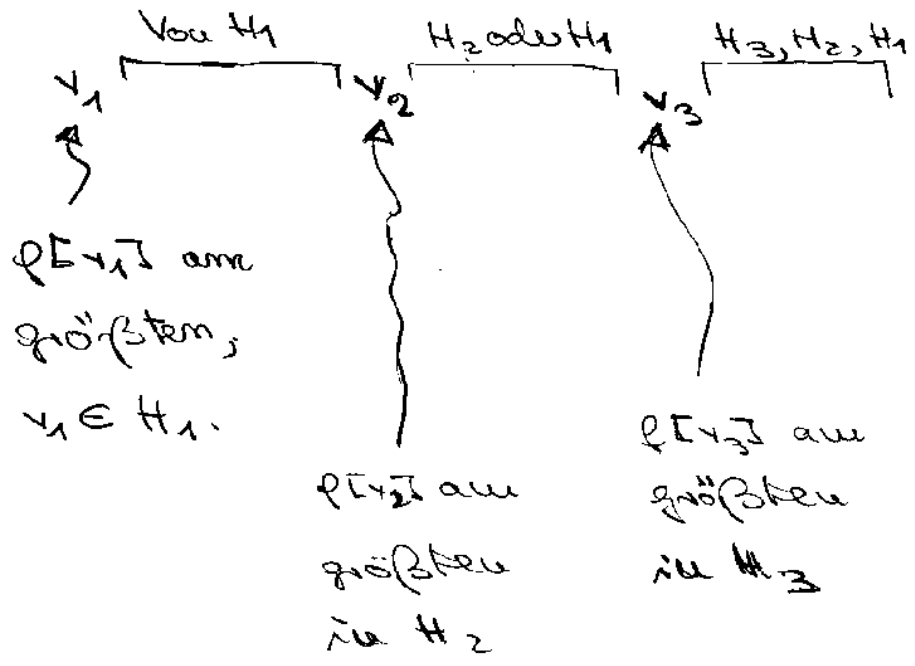 Von H1
H2 oder H1
H3, H2, H1
v1
v2
v3
f[v1] am
größten,
v1 ∈ H1.
f[v2] am
größten
in H2
f[v3] am
größten
in H3